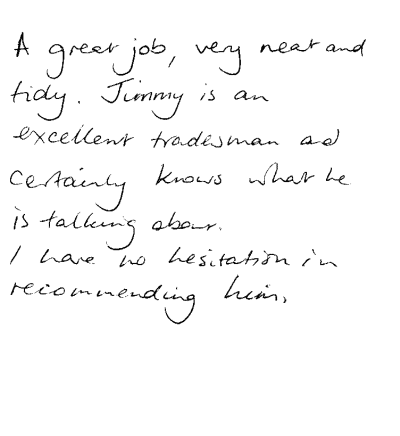 A great job, very neat and
tidy. Jimmy is an
excellent tradesman ad
certainly knows what he
is talking about.
I have no hesitation in
recommending him.